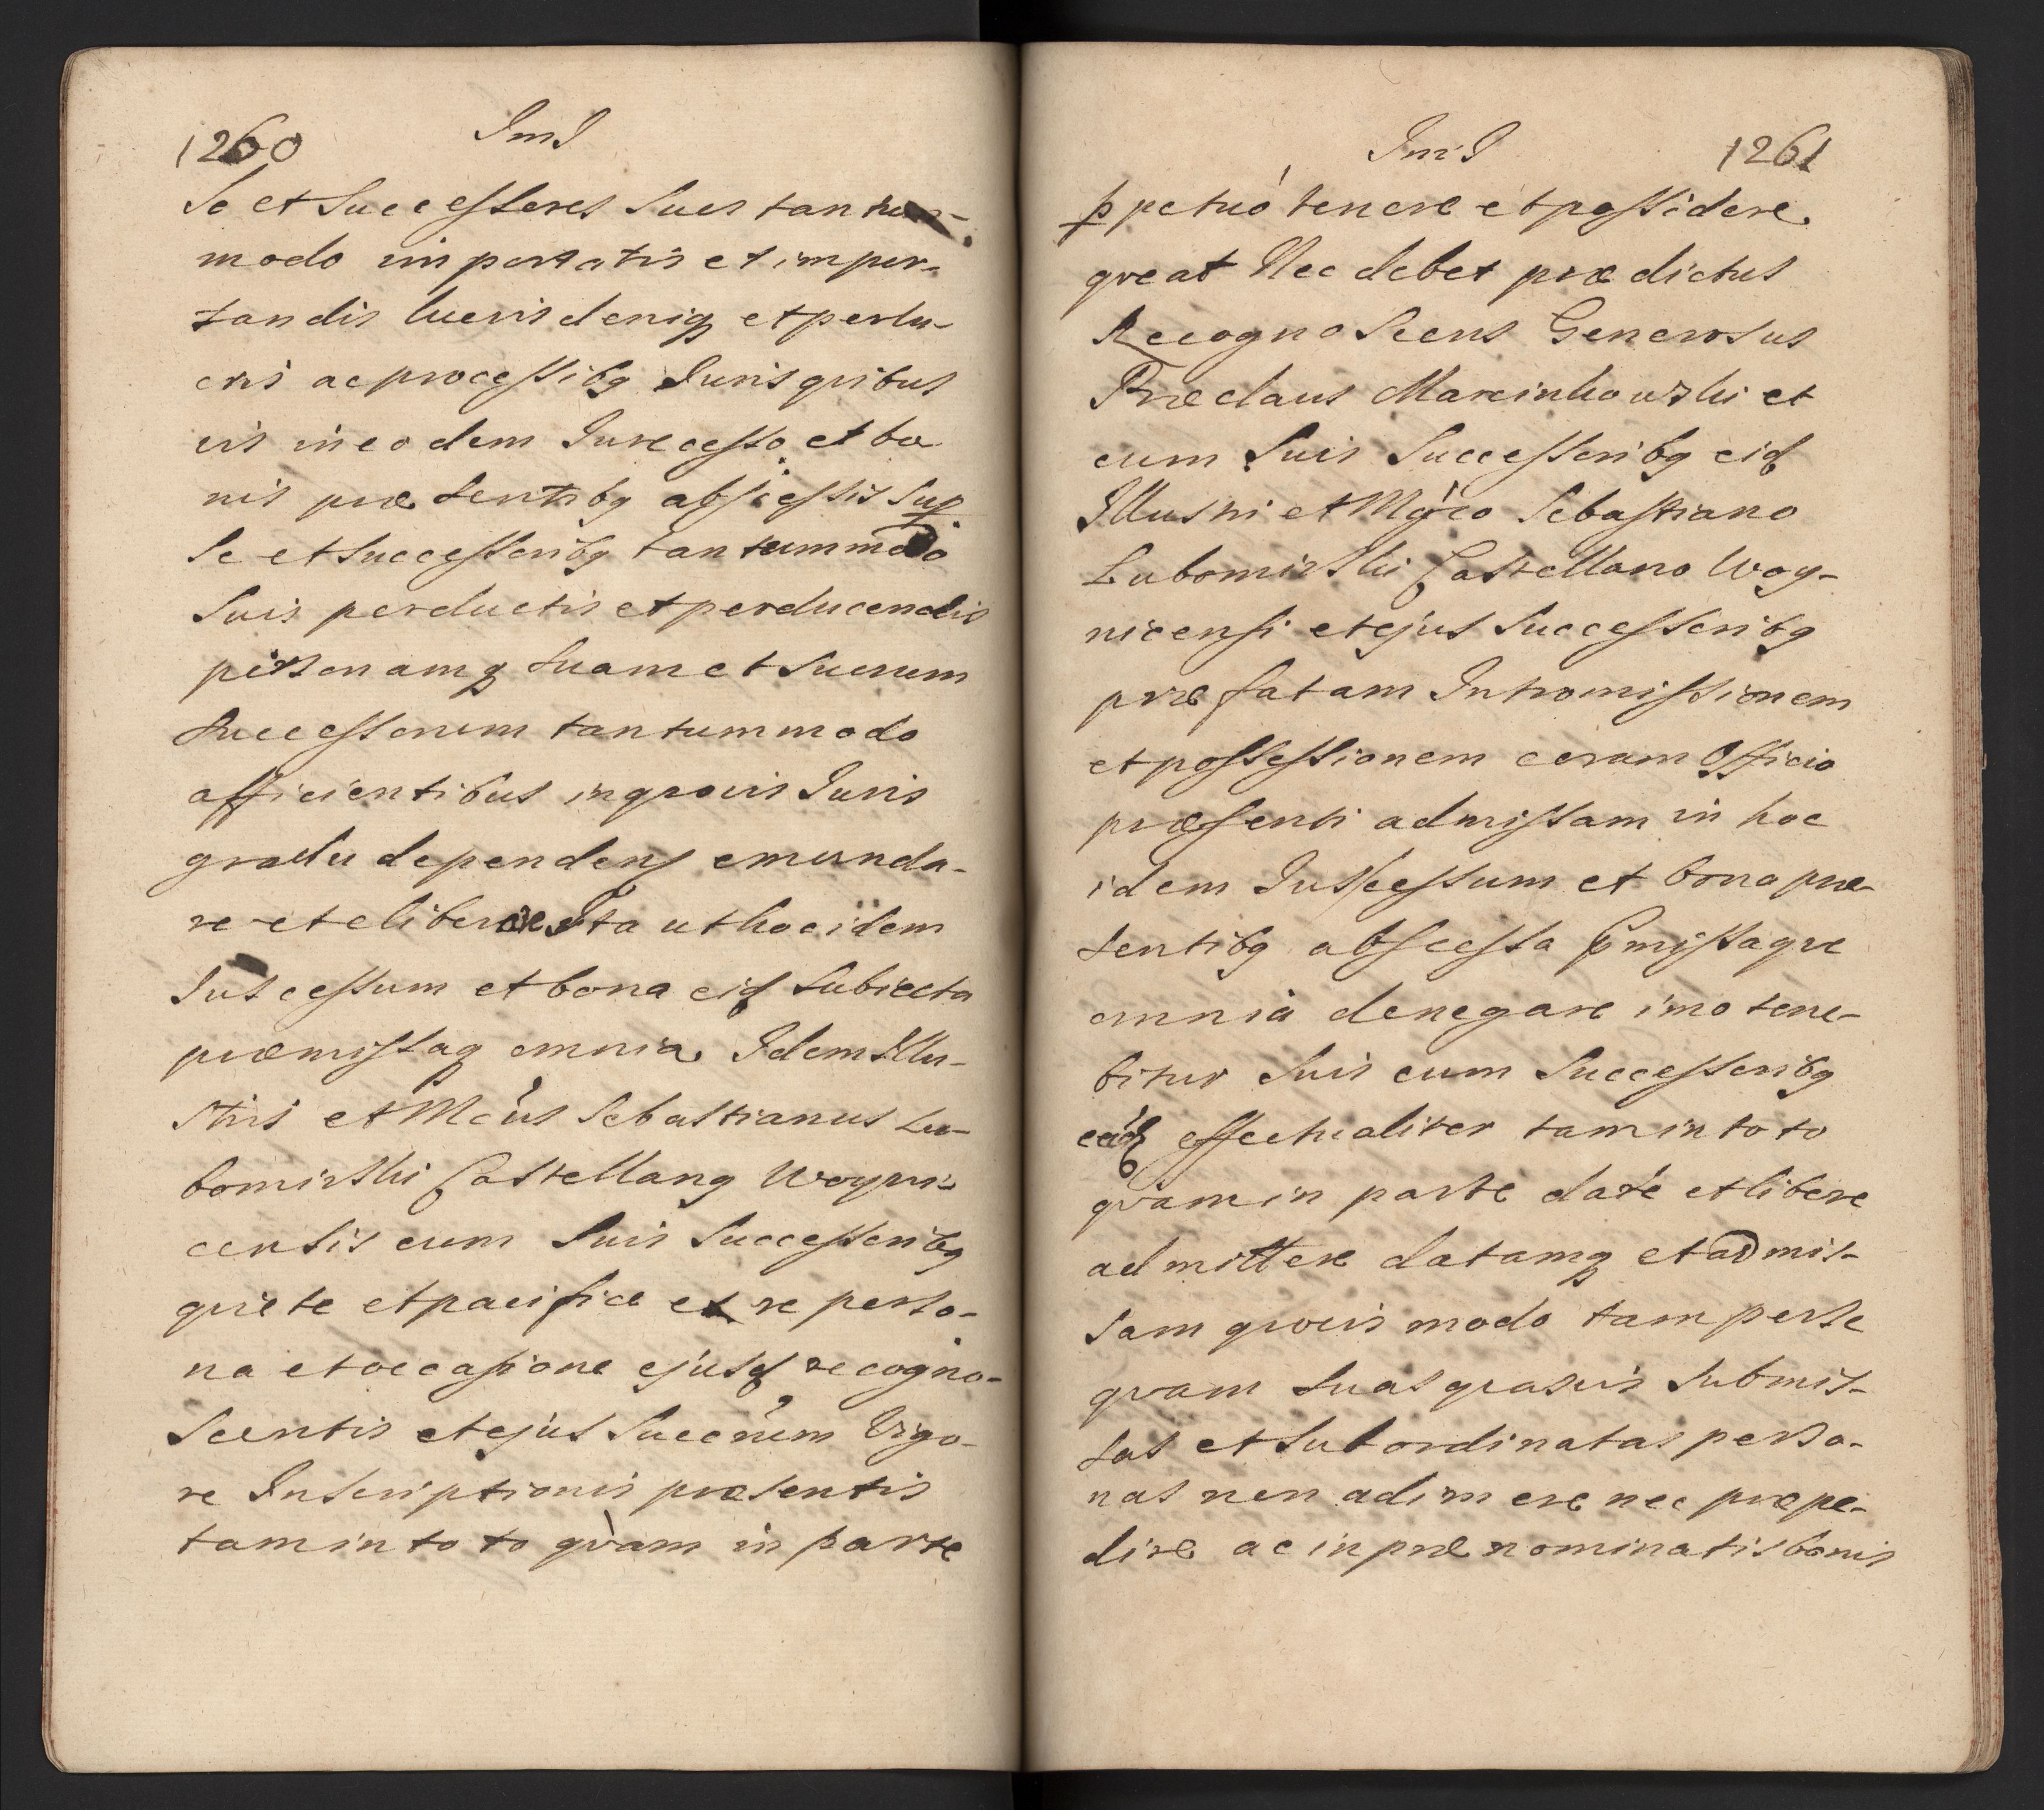 1260 JmJ
Se et Successores Suos tantum-
modo importatis et impor-
tandis lucris deniq et perlu-
cris ac processibq Juris quibus
vis in eodem Jure cesso et bo
nis præsentibq abscessis sup
Se et Successoribq tantummodo
Suis perductis et perducendis
personamq Suam et Suorum
Successorum tantummodo
afficientibus in qvovis Juris
gradu dependen emunda-
re et eliberare Ita ut hoc idem
Jus cessum et bona eid Subiecta
præmissaq omnia Idem Illu-
stris et Mcus Sebastianus Lu-
bomirski Castellanq Woyni-
censis cum Suis Successoribq
qviete et pacifice ex re perso-
na et occasione ejusd recogno-
Scentis et ejus Succrum Vigo-
re Inscriptionis præsentis
tam in toto qvam in parte
JmJ 1261
ppetuo tenere et possidere
qveat Nec debet prædictus
Recognoscens Generosus
Præclaus Marcinkowski et
cum Suis Successoribq eid
Illustri et Mgco Sebastiano
Lubomirski Castellano Woy-
nicensi et ejus Successoribq
præfatam Intromissionem
et possessionem coram Officio
præsenti admissam in hoc
idem Jus cessum et bona præ-
sentibq abscessa pmissaqve
omnia denegare imo tene-
bitur Suis cum Successoribq
eand effectualiter tam in toto
qvam in parte dare et libere
admittere datamq et admis-
sam qvovis modo tam per se
qvam Suas qvasvis Submis-
sas et Subordinatas perso-
nas non adimere nec præpe-
dire ac in prænominatis bonis